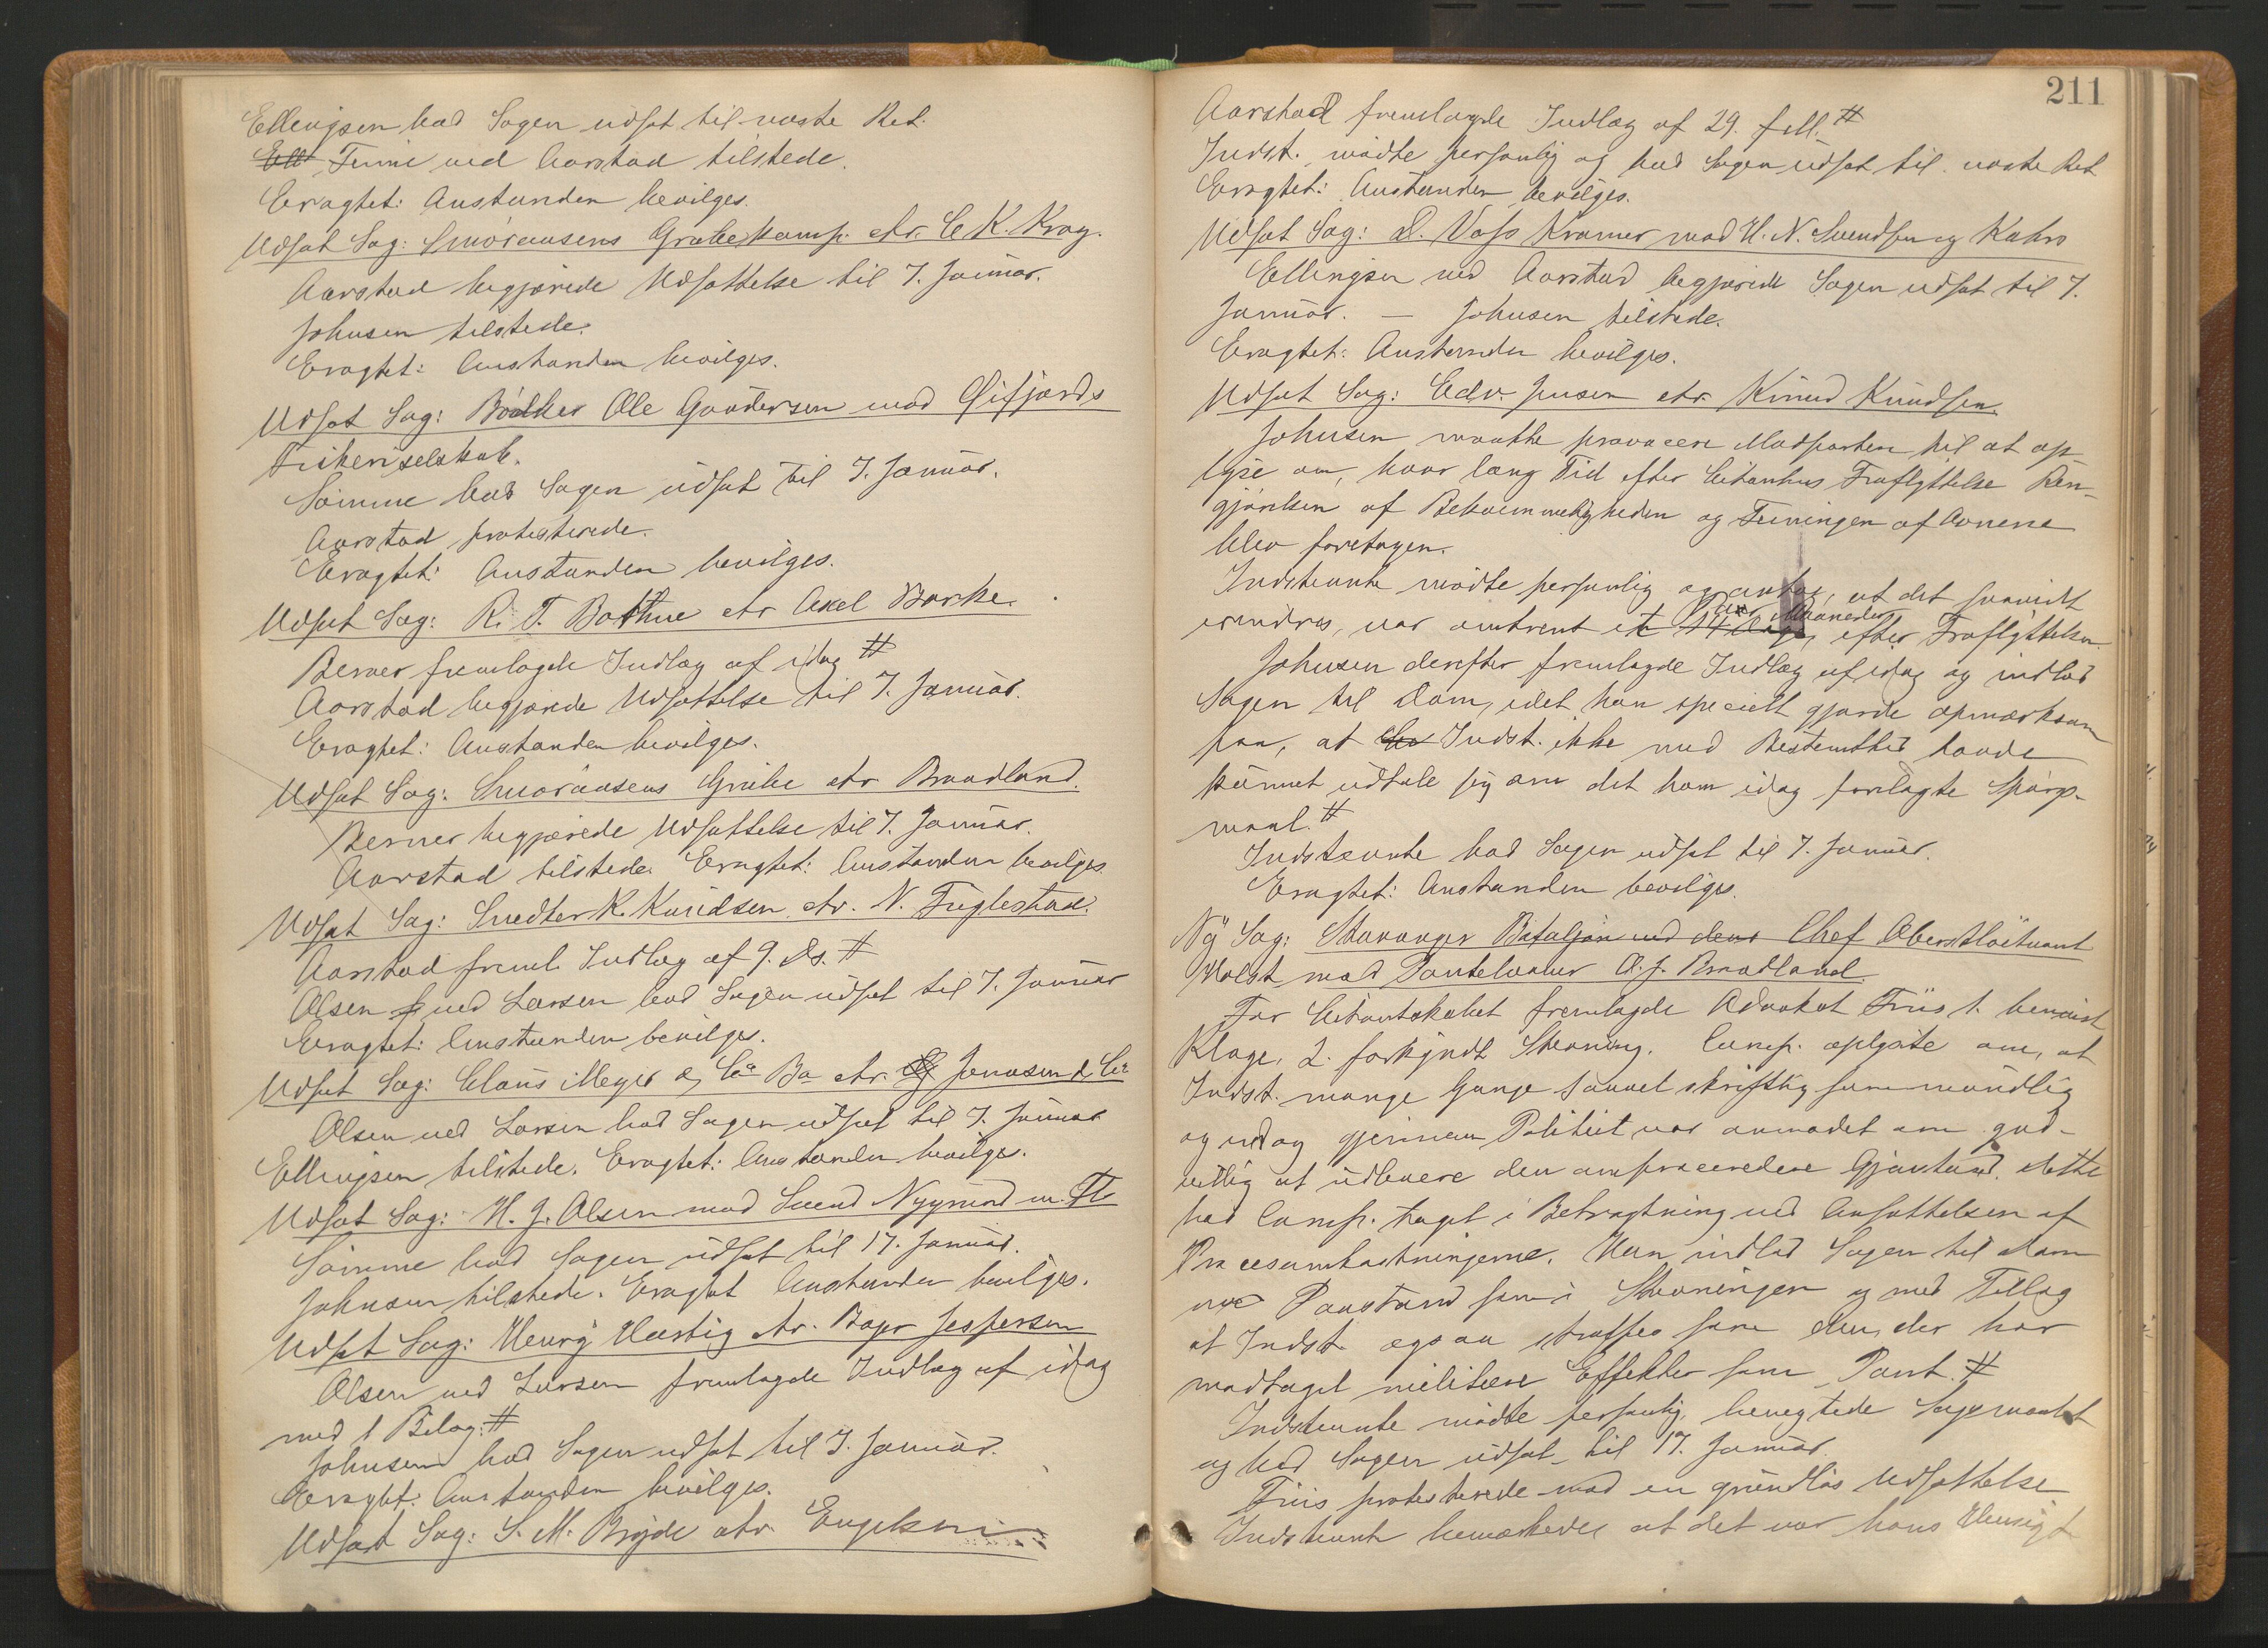 Ellingsen bad Sagen udsat til næste Ret.
Ell Finne ved Aarstad tilstede.
Eragtet: Anstanden bevilges.
Udsat Sag: Smøraasens Grubekomp. ctr. C. K. Krag.
Aarstad begjærede Udsættelse til 7. Januar.
Johnsen tilstede.
Eragtet: Anstanden bevilges.
Udsat Sag: Bødker Ole Gundersen mod Øifjords
Fiskeriselskab.
Sømme bad Sagen udsat til 7. Januar.
Aarstad protesterede.
Eragtet: Anstanden bevilges.
Udsat Sag: R. T. Bothne ctr Axel Barke.
Berner fremlagde Indlæg af idag #
Aarstad begjærede Udsættelse til 7. Januar.
Eragtet: Anstanden bevilges.
Udsat Sag: Smøraasens Grube ctr Braadland.
Berner begjærede Udsættelse til 7. Januar.
Aarstad tilstede. Eragtet: Anstanden bevilges.
Udsat Sag: Snedker K. Knudsen ctr. N. Fuglestad.
Aarstad freml. Indlæg af 9. ds. #
Olsen ved Larsen bad Sagen udsat til 7. Januar
Eragtet: Anstanden bevilges.
Udsat Sag: Claus Meyer & Co Bo ctr. Jonasen & Co
Olsen ved Larsen bad Sagen udsat til 7. Januar
Ellingsen tilstede. Eragtet: Anstanden bevilges.
Udsat Sag: H. J. Olsen mod Svend Nygrind m. Fl.
Sømme bad Sagen udsat til 17. Januar.
Johnsen tilstede. Eragtet Anstanden bevilges.
Udsat Sag: Henry Hartig ctr. Bager Jespersen
Olsen ved Larsen fremlagde Indlæg af idag
med 1 Bilag: #
Johnsen bad Sagen udsat til 7. Januar.
Eragtet: Anstanden bevilges.
Udsat Sag: S. M. Bryde ctr. Engelsen
211
Aarstad fremlagde Indlæg af 29. f. M. #
Indst. mødte personlig og bad Sagen udsat til næste Ret
Eragtet: Anstanden bevilges.
Udsat Sag: D. Voss Kramer mod H. N. Svendsen og Kahrs
Ellingsen ved Aarstad begjærede Sagen udsat til 7.
Januar. — Johnsen tilstede.
Eragtet: Anstanden bevilges.
Udsat Sag: Edv. Jensen ctr. Knud Knudsen.
Johnsen maatte provocere Modparten til at op-
lyse om, hvor lang Tid efter Citantens Fraflyttelse Ren-
gjørelsen af Bekvemmeligheden og Feiningen af Ovnene
blev foretagen.
Indstevnte mødte personlig og antog, at det saavidt
erindres, var omtrent et Par Maaneder efter Fraflyttelsen.
Johnsen derefter fremlagde Indlæg af idag og indlod
Sagen til Dom, idet han specielt gjorde opmærksom
paa, at Indst. ikke med Bestemthed havde
kunnet udtale sig om det ham idag forelagte Spørgs-
maal. #
Indstevnte bad Sagen udsat til 7. Januar.
Eragtet: Anstanden bevilges.
Ny Sag: Stavanger Bataljon ved dens Chef Oberstløitnant
Holst mod Pantelaaner A. J. Braadland.
For Citantskabet fremlagde Advokat Friis 1. henvist
Klage, 2. forkyndt Stevning. Comp. oplyste om, at
Indst. mange Gange saavel skriftlig som mundlig
og endog gjennem Politiet var anmodet om god-
villig at udlevere den omprocederede Gjenstand. Dette
bad Comp. taget i Betragtning ved Ansættelsen af
Procesomkostningerne. Han indlod Sagen til Dom
med Paastand som i Stevningen og med Tillæg
at Indst. ogsaa straffes som den, der har
modtaget militære Effekter som Pant. #
Indstevnte mødte personlig, benegtede Søgsmaalet
og bad Sagen udsat til 17. Januar.
Friis protesterede mod en grundløs Udsættelse
Indstevnte bemærkede, at det var hans Hensigt